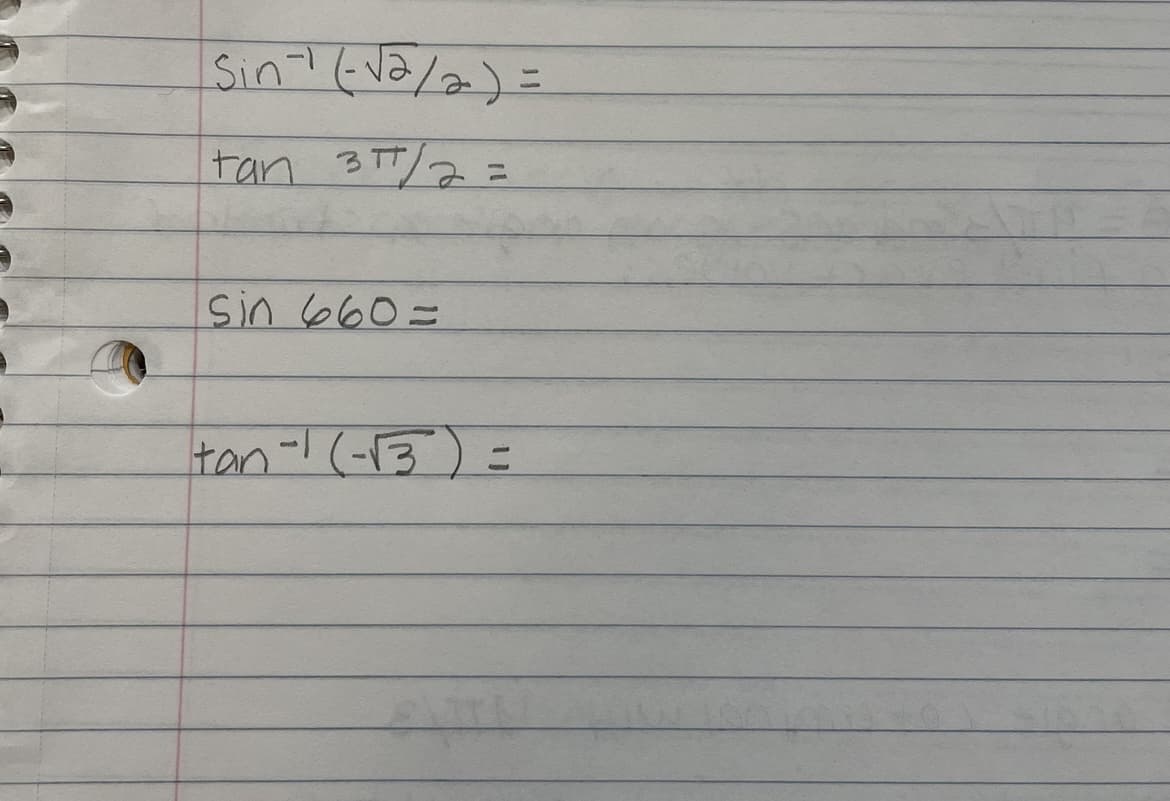 sin⁻¹ (-√2/2) =
tan 3π/2 =
sin 660 =
tan⁻¹ (-√3) =